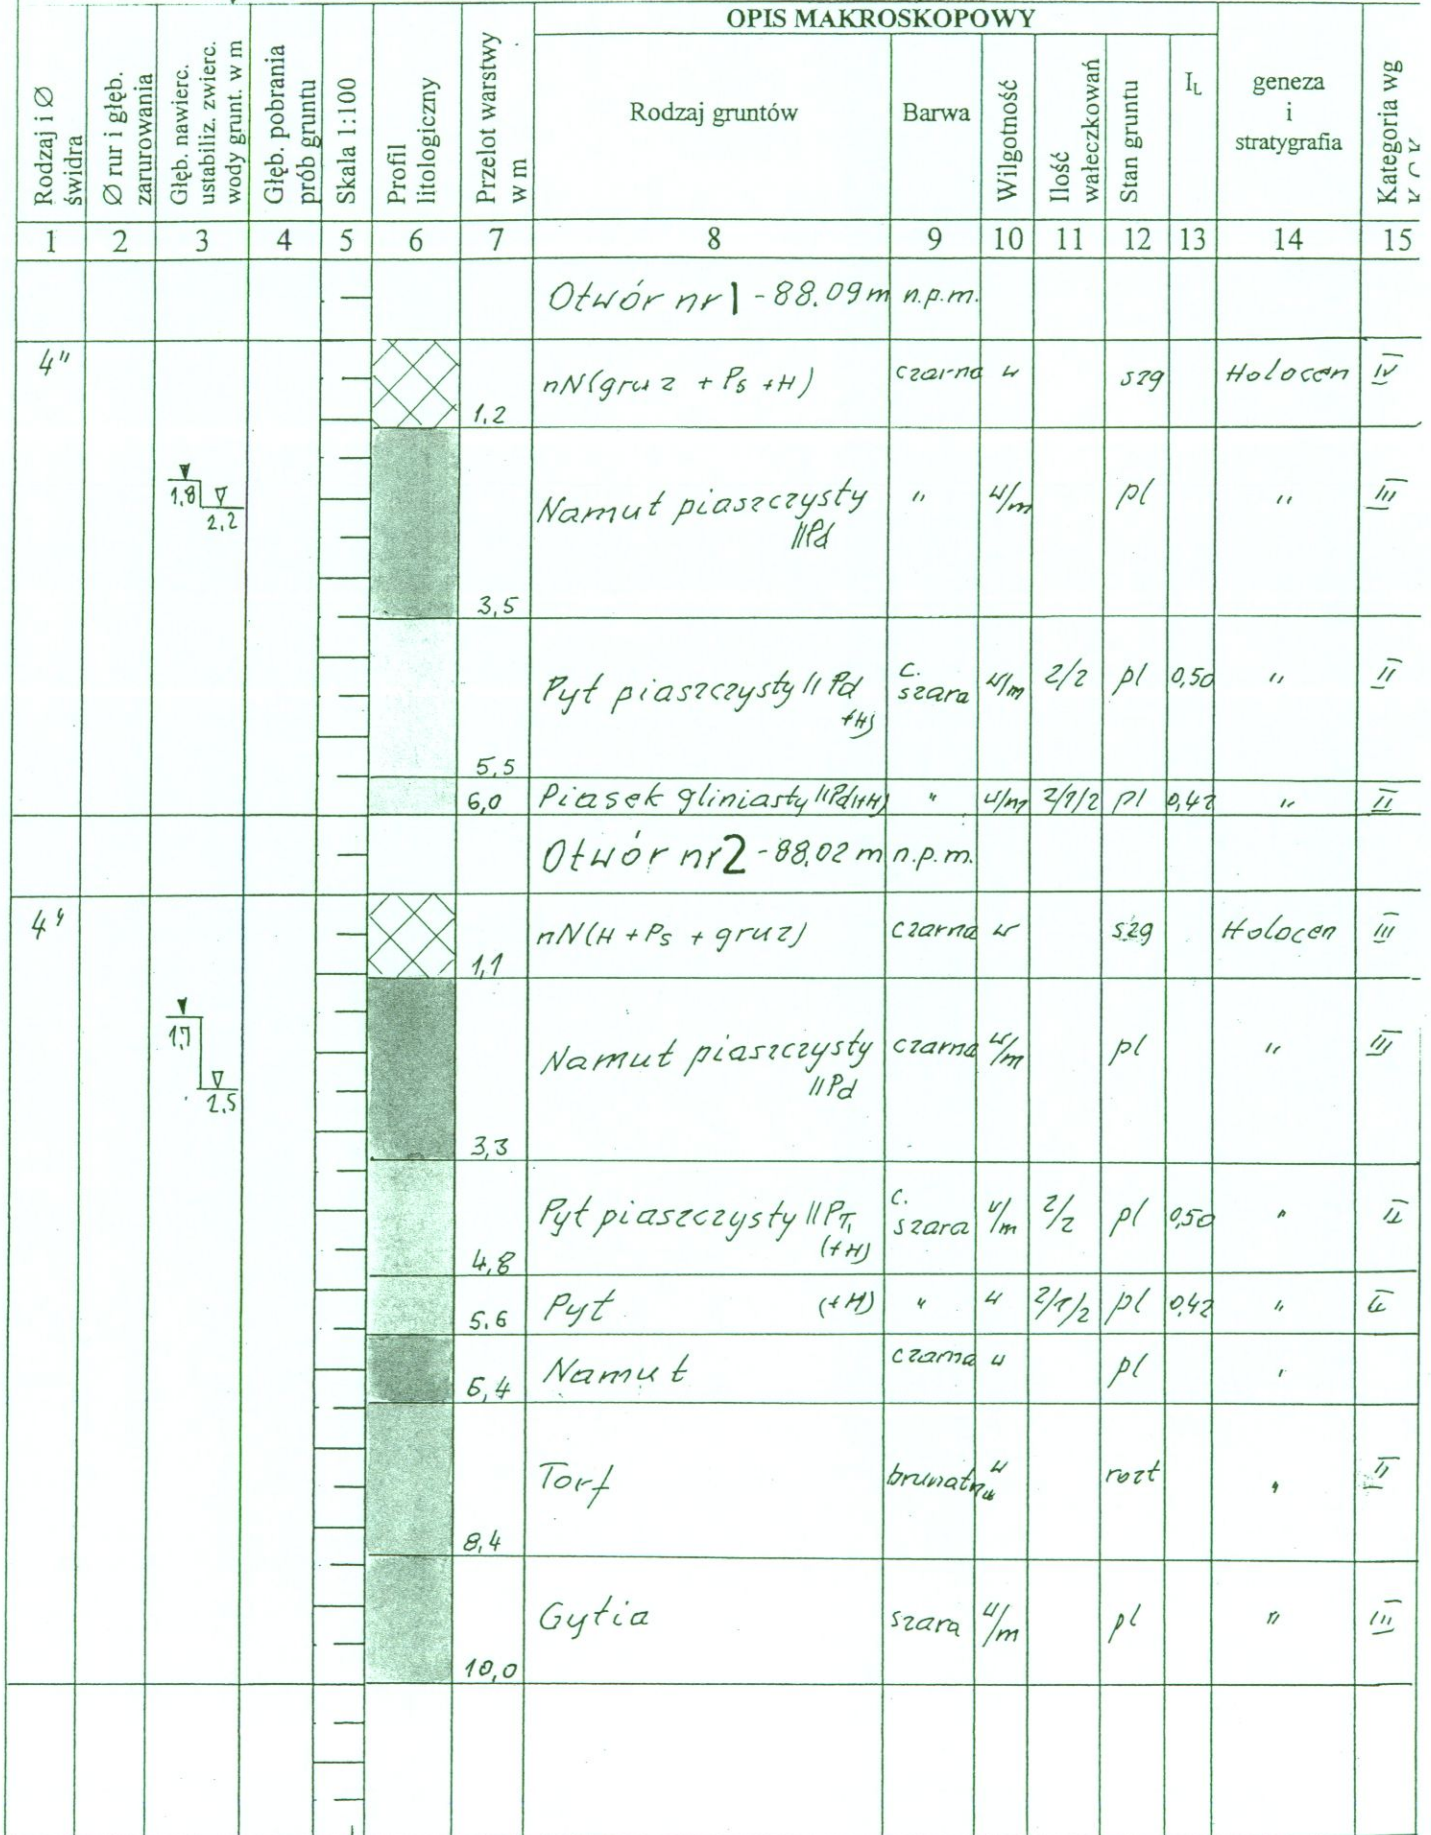 OPIS MAKROSKOPOWY
Rodzaj i Ø świdra
Ø rur i głęb. zarurowania
Głęb. nawierc. ustabiliz. zwierc. wody grunt. w m
Głęb. pobrania prób gruntu
Skala 1:100
Profil litologiczny
Przelot warstwy w m
Rodzaj gruntów
Barwa
Wilgotność
Ilość wałeczkowań
Stan gruntu
I_L
geneza i stratygrafia
Kategoria wg
1 2 3 4 5 6 7 8 9 10 11 12 13 14 15
Otwór nr 1 - 88.09 m n.p.m.
4" 1,2 nN(gruz + Ps + H) czarna w szg Holocen IV
1,8 2,2 3,5 Namuł piaszczysty //Pd " w/m pl " III
5,5 Pył piaszczysty // Pd +H) c. szara w/m 2/2 pl 0,50 " II
6,0 Piasek gliniasty //Pd(+H) " w/m 2/1/2 pl 0,42 " II
Otwór nr 2 - 88.02 m n.p.m.
4" 1,1 nN(H + Ps + gruz) czarna w szg Holocen III
1,7 2,5 3,3 Namuł piaszczysty //Pd czarna w/m pl " III
4,8 Pył piaszczysty //Pπ (+H) c. szara w/m 2/2 pl 0,50 " II
5,6 Pył (+H) " w 2/1/2 pl 0,42 " II
6,4 Namuł czarna w pl "
8,4 Torf brunatna w rozł " II
10,0 Gytia szara w/m pl " III